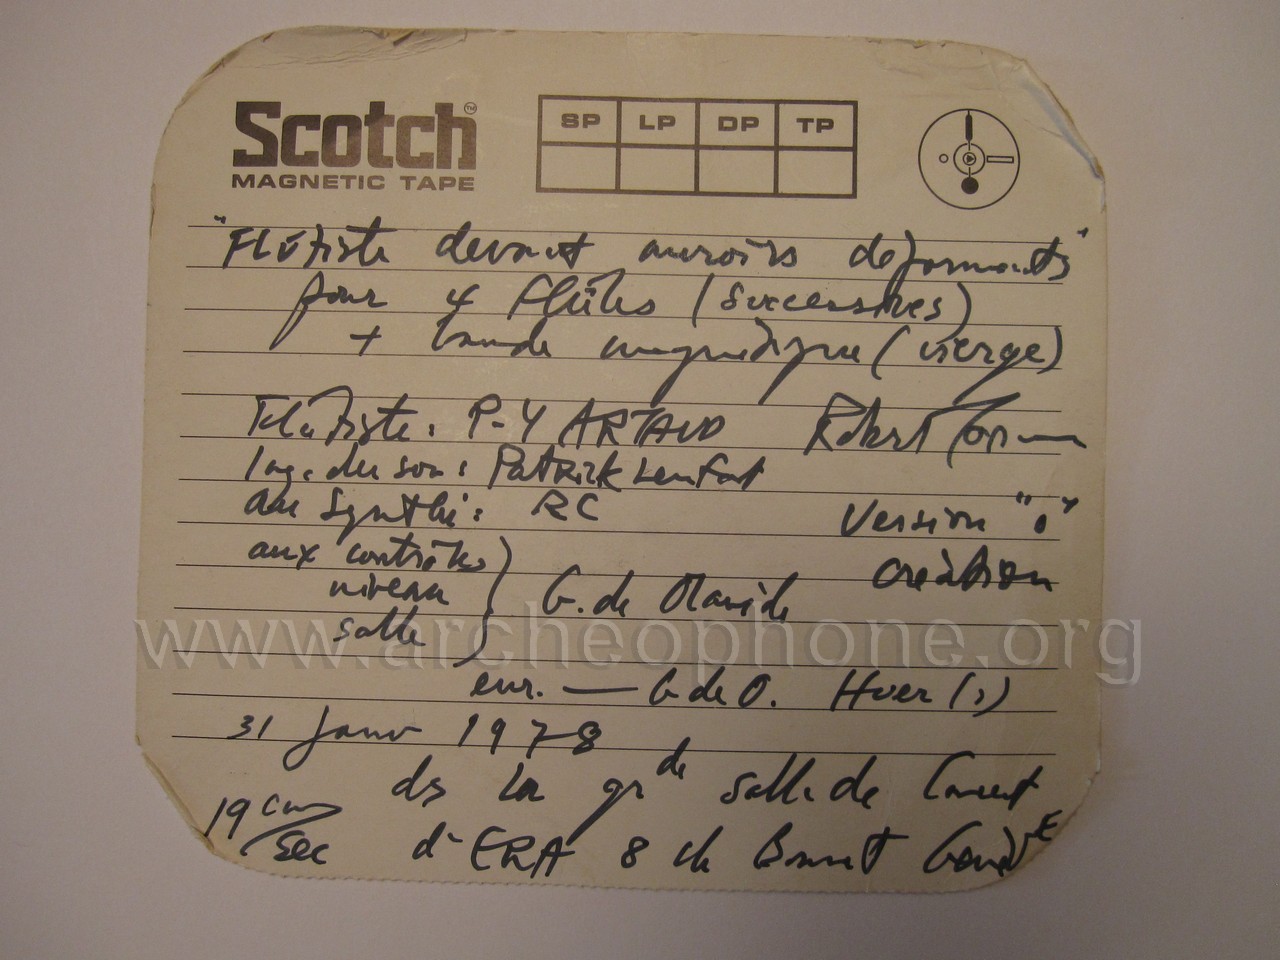 Scotch™
MAGNETIC TAPE
SP LP DP TP
"Flûtiste devant miroirs déformants"
pour 4 flûtes (successives)
+ bande magnétique (vierge)
Flûtiste: P-Y ARTAUD Robert
Ing. du son: Patrick Lenfant
au Synthi: RC
Version "0"
aux contrôles création
niveau G. de Olavide
salle
www.archeophone.org
enr. — G de O.
31 janv 1978
ds la grde salle de Concert
19 cm/sec d'ERA 8 ch Bonnet Genève